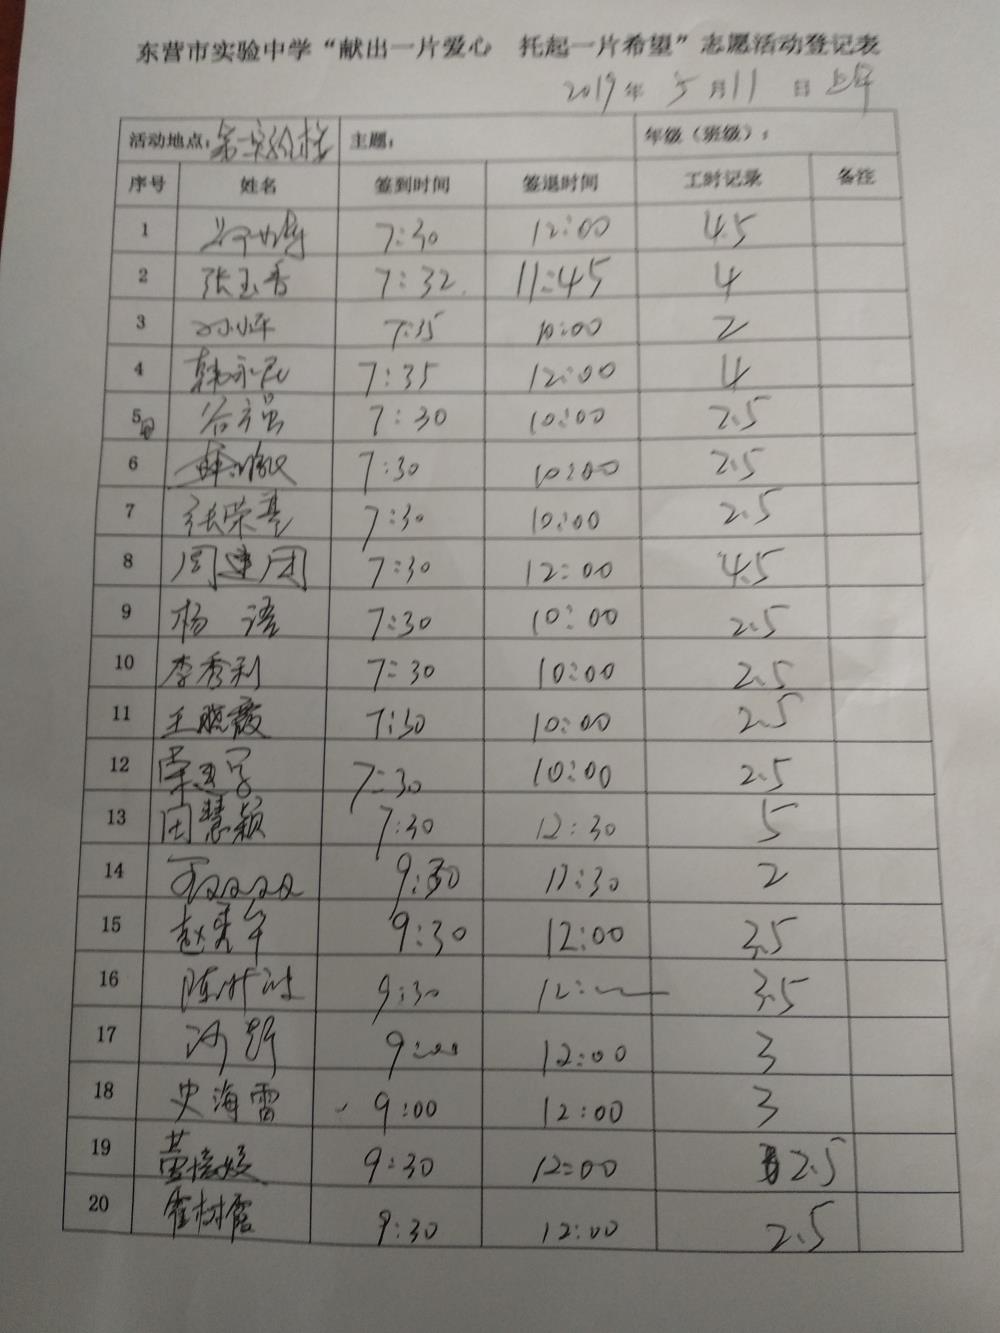 东营市实验中学“献出一片爱心 托起一片希望”志愿活动登记表
2019年 5月11日 上午
活动地点: 主题: 年级（班级）:
序号 姓名 签到时间 签退时间 工时记录 备注
1 7:30 12:00 4.5
2 张玉香 7:32 11:45 4
3 7:35 10:00 2
4 韩永民 7:35 12:00 4
5 谷方强 7:30 10:00 2.5
6 7:30 10:00 2.5
7 张荣基 7:30 10:00 2.5
8 周建团 7:30 12:00 4.5
9 杨 语 7:30 10:00 2.5
10 李秀利 7:30 10:00 2.5
11 王晓霞 7:30 10:00 2.5
12 7:30 10:00 2.5
13 田慧颖 7:30 12:30 5
14 9:30 11:30 2
15 9:30 12:00 3.5
16 9:30 12: 3.5
17 9:00 12:00 3
18 史海雷 9:00 12:00 3
19 9:30 12:00 2.5
20 9:30 12:00 2.5